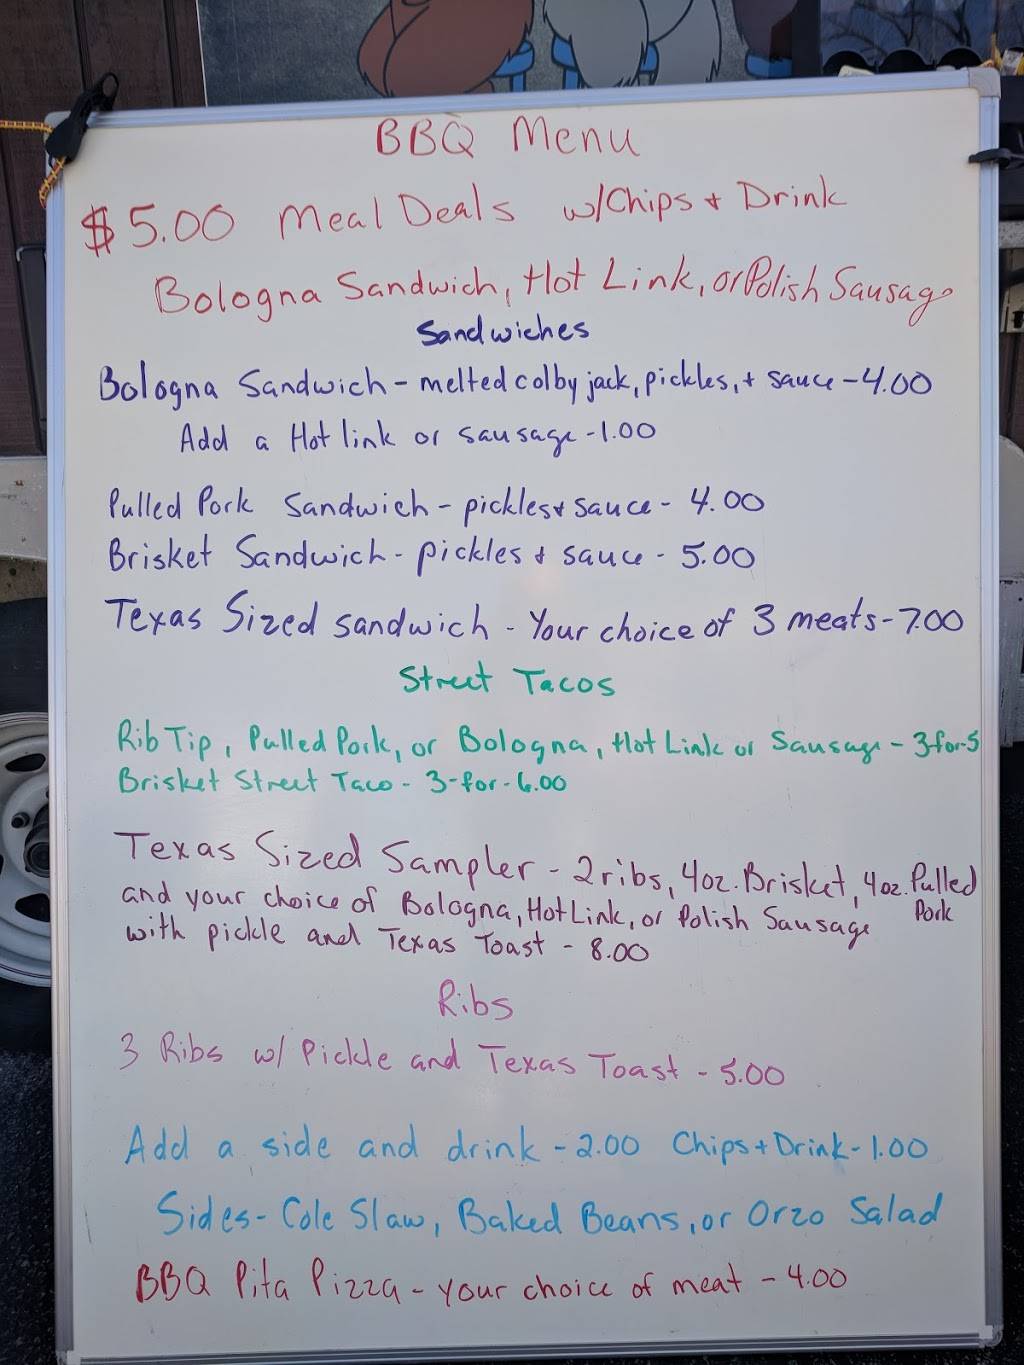 BBQ Menu
$5.00 Meal Deals w/Chips + Drink
Bologna Sandwich, Hot Link, or Polish Sausage
Sandwiches
Bologna Sandwich - melted colby jack, pickles, + sauce - 4.00
Add a Hot link or sausage - 1.00
Pulled Pork Sandwich - pickles + sauce - 4.00
Brisket Sandwich - pickles + sauce - 5.00
Texas Sized sandwich - Your choice of 3 meats - 7.00
Street Tacos
Rib Tip, Pulled Pork, or Bologna, Hot Link or Sausage - 3-for-5
Brisket Street Taco - 3-for-6.00
Texas Sized Sampler - 2 ribs, 4oz. Brisket, 4oz. Pulled Pork
and your choice of Bologna, Hot Link, or Polish Sausage
with pickle and Texas Toast - 8.00
Ribs
3 Ribs w/ Pickle and Texas Toast - 5.00
Add a side and drink - 2.00 Chips + Drink - 1.00
Sides - Cole Slaw, Baked Beans, or Orzo Salad
BBQ Pita Pizza - your choice of meat - 4.00